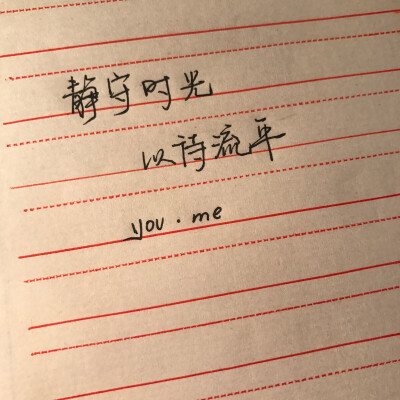 静守时光
以诗流年
you . me